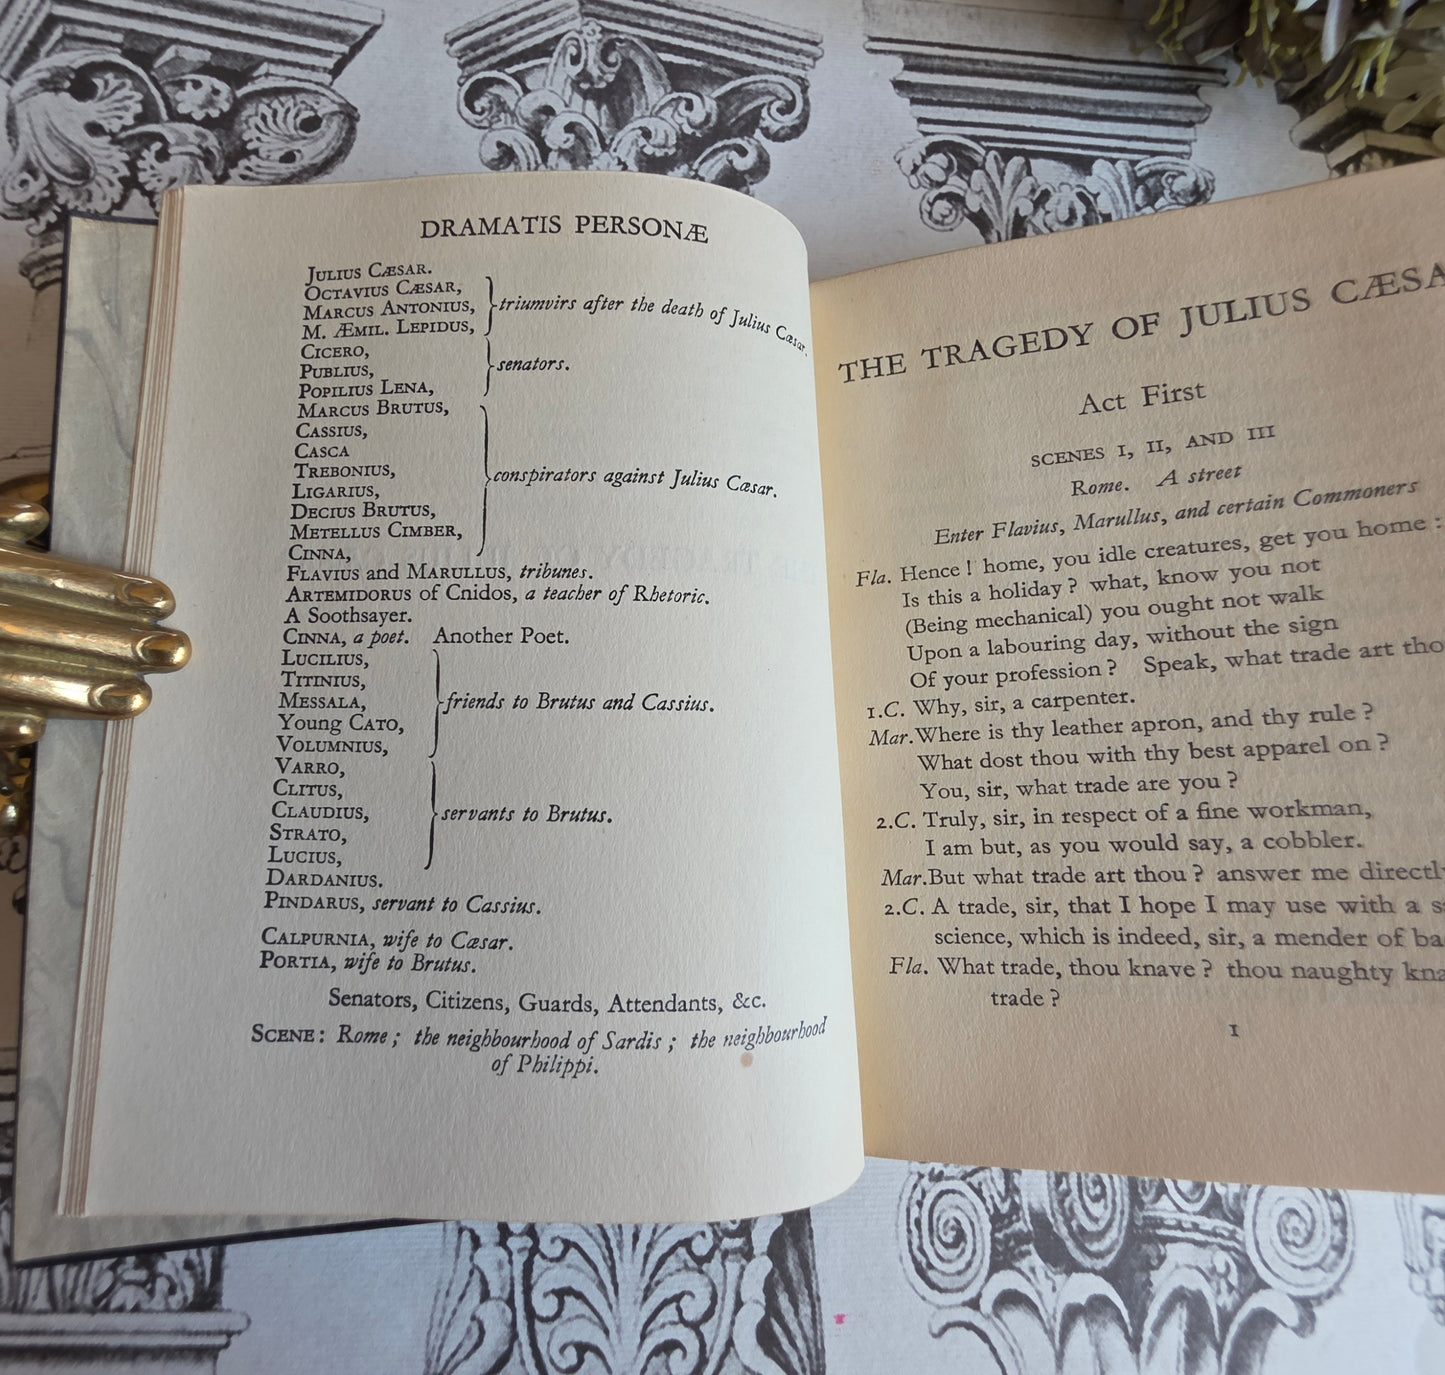 DRAMATIS PERSONÆ
JULIUS CÆSAR.
OCTAVIUS CÆSAR,
MARCUS ANTONIUS,
M. ÆMIL. LEPIDUS,
triumvirs after the death of Julius Cæsar.
CICERO,
PUBLIUS,
POPILIUS LENA,
senators.
MARCUS BRUTUS,
CASSIUS,
CASCA
TREBONIUS,
LIGARIUS,
DECIUS BRUTUS,
METELLUS CIMBER,
CINNA,
conspirators against Julius Cæsar.
FLAVIUS and MARULLUS, tribunes.
ARTEMIDORUS of Cnidos, a teacher of Rhetoric.
A Soothsayer.
CINNA, a poet. Another Poet.
LUCILIUS,
TITINIUS,
MESSALA,
Young CATO,
VOLUMNIUS,
friends to Brutus and Cassius.
VARRO,
CLITUS,
CLAUDIUS,
STRATO,
LUCIUS,
servants to Brutus.
DARDANIUS.
PINDARUS, servant to Cassius.
CALPURNIA, wife to Cæsar.
PORTIA, wife to Brutus.
Senators, Citizens, Guards, Attendants, &c.
SCENE: Rome; the neighbourhood of Sardis; the neighbourhood
of Philippi.
THE TRAGEDY OF JULIUS CÆSA
Act First
SCENES I, II, AND III
Rome. A street
Enter Flavius, Marullus, and certain Commoners
Fla. Hence! home, you idle creatures, get you home:
Is this a holiday? what, know you not
(Being mechanical) you ought not walk
Upon a labouring day, without the sign
Of your profession? Speak, what trade art tho
1.C. Why, sir, a carpenter.
Mar. Where is thy leather apron, and thy rule?
What dost thou with thy best apparel on?
You, sir, what trade are you?
2.C. Truly, sir, in respect of a fine workman,
I am but, as you would say, a cobbler.
Mar. But what trade art thou? answer me directly
2.C. A trade, sir, that I hope I may use with a s
science, which is indeed, sir, a mender of ba
Fla. What trade, thou knave? thou naughty kna
trade?
1